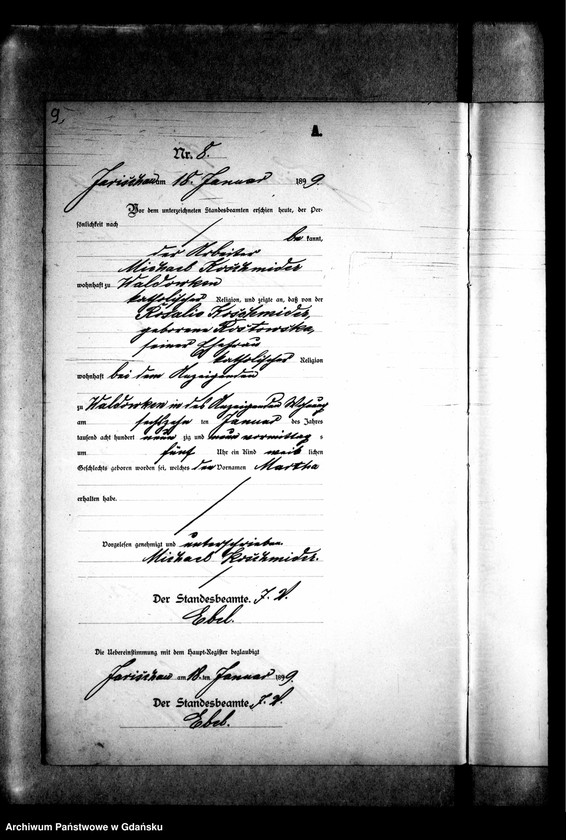 9.
A.
Nr. 8.
Jarischau am 18. Januar 1899.
Vor dem unterzeichneten Standesbeamten erschien heute, der Per-
sönlichkeit nach
be kannt,
der Arbeiter
Michael Koschmider
wohnhaft zu Waldowken
katholischer Religion, und zeigte an, daß von der
Rosalie Koschmider,
geborene Rostowska,
seiner Ehefrau
katholischer Religion
wohnhaft bei dem Anzeigenden
zu Waldowken in des Anzeigenden Wohnung
am sechszehn ten Januar des Jahres
tausend acht hundert neun zig und neun vormittag s
um fünf Uhr ein Kind weib lichen
Geschlechts geboren worden sei, welches den Vornamen Martha
erhalten habe.
Vorgelesen, genehmigt und unterschrieben.
Michael Koschmider.
Der Standesbeamte. J. V.
Ebel.
Die Uebereinstimmung mit dem Haupt-Register beglaubigt
Jarischau am 18. ten Januar 1899.
Der Standesbeamte. J. V.
Ebel.
Archiwum Państwowe w Gdańsku